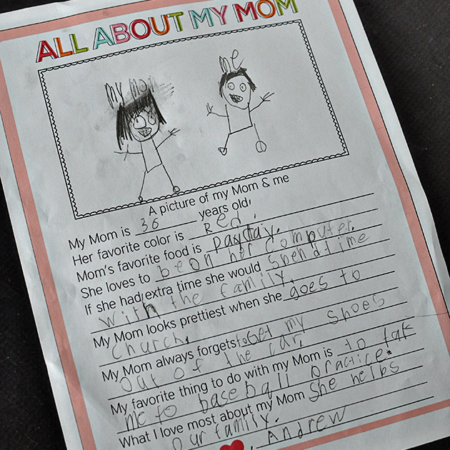 ALL ABOUT MY MOM
my mom
me
A picture of my Mom & me
My Mom is 36 years old!
Her favorite color is Red.
Mom's favorite food is payday.
She loves to be on her computer.
If she had extra time she would spend time
with the family.
My Mom looks prettiest when she goes to
church.
My Mom always forgets to get my shoes
out of the car.
My favorite thing to do with my Mom is to tak
me to baseball practice.
What I love most about my Mom She helps
our family.
Andrew